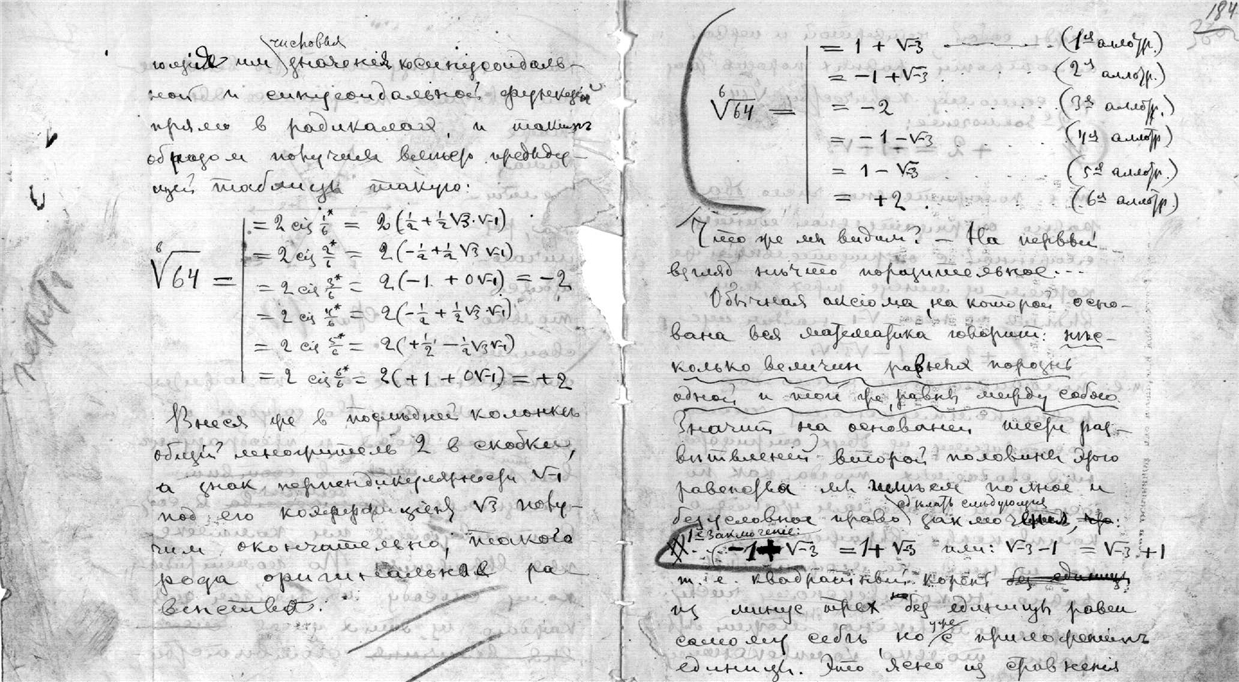 числовыя
ющія им значенія косинусоидаль-
ной и синусоидальной функцій
прямо в радикалах, и таким
образом получим вместо предыду-
щей таблицы такую:
= 2 cis 1*/6 = 2(1/2 + 1/2 √3 √-1)
= 2 cis 2*/6 = 2(-1/2 + 1/2 √3 √-1)
6√64 = = 2 cis 3*/6 = 2(-1 + 0√-1) = -2
= 2 cis 4*/6 = 2(-1/2 + 1/2 √3 √-1)
= 2 cis 5*/6 = 2(+1/2 - 1/2 √3 √-1)
= 2 cis 6*/6 = 2(+1 + 0√-1) = +2
Внеся же в последней колонке
общий множитель 2 в скобки,
а знак перпендикулярности √-1
под его коэффиціент √3 полу-
чим окончательно, такого
рода оригинальныя ра-
венства:
184
= 1 + √-3 (1ая аллотр.)
= -1 + √-3 (2ая аллотр.)
6√64 = = -2 (3ая аллотр.)
= -1 - √-3 (4ая аллотр.)
= 1 - √-3 (5ая аллотр.)
= +2 (6ая аллотр.)
Что же мы видим? — На первый
взгляд нечто поразительное...
Обычная аксіома, на которой осно-
вана вся математика говорит: нѣс-
колько величин равныя порознь
одной и той же, равны между собою
Значит на основаніи шести раз-
вѣтвленій второй половины этого
равенства мы имѣем полное и
безусловное право сдѣлать слѣдующія
1е Заключеніе:
-1 + √-3 = 1 + √-3 или: √-3 - 1 = √-3 + 1
т.е. квадратный корень без единицы
из минус трех без единицы равен
самому себѣ, но уже с приложеніем
единицы. Это ясно из сравненія